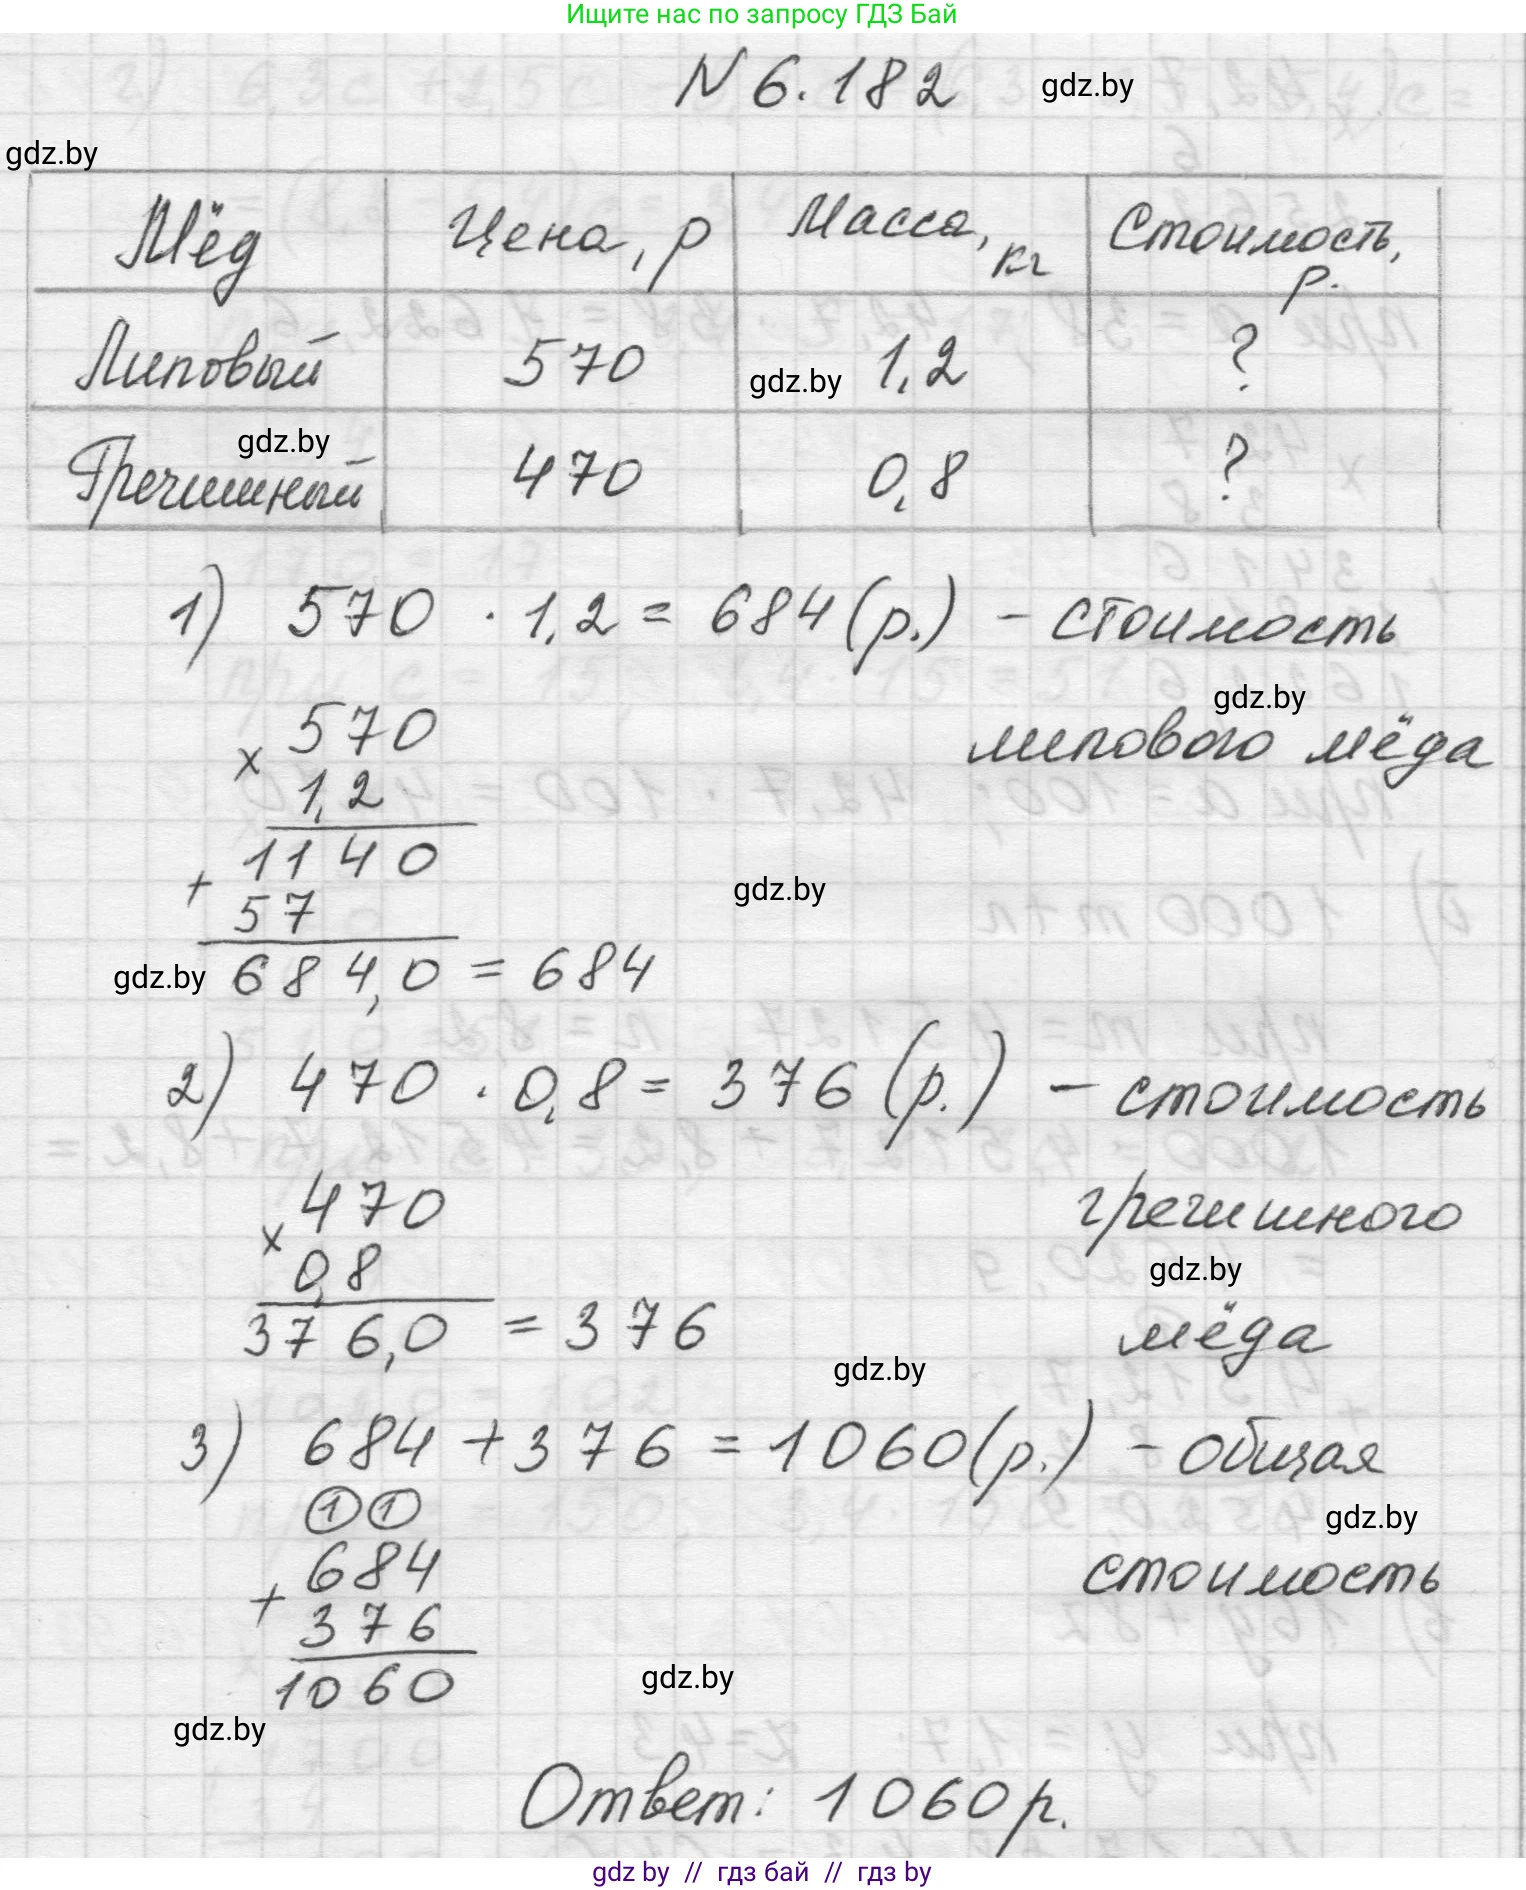 Ищите нас по запросу ГДЗ Бай
N 6.182 gdz.by
gdz.by
Мёд Цена, р Масса, кг Стоимость, р.
Липовый 570 gdz.by 1,2 ?
gdz.by
Гречишный 470 0,8 ?
1) 570 · 1,2 = 684 (р.) – стоимость
gdz.by
липового мёда
570
×
1,2
1140
+
57
gdz.by
gdz.by 684,0 = 684
2) 470 · 0,8 = 376 (р.) – стоимость
гречишного
470
×
0,8
gdz.by
376,0 = 376
мёда
gdz.by
3) 684 + 376 = 1060 (р.) – общая
1 1
gdz.by
стоимость
684
+
376
1060
gdz.by
gdz.by
Ответ: 1060 р.
gdz by // гдз бай // гдз by